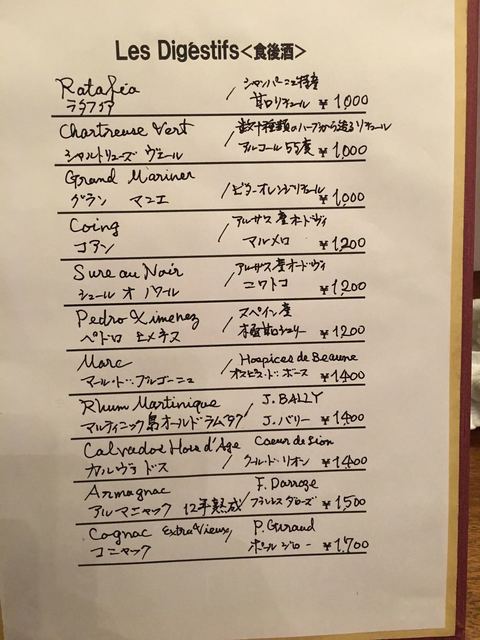 Les Digéstifs<食後酒>
Ratafia / シャンパーニュ特産
ラタフィア 甘口リキュール ¥1,000
Chartreuse Vert / 数十種類のハーブから造るリキュール
シャルトリューズ ヴェール アルコール55度 ¥1,000
Grand Mariner / ビターオレンジリキュール
グラン マニエ ¥1,000
Coing / アルザス産オードヴィ
コアン マルメロ ¥1,200
Sureau Noir / アルザス産オードヴィ
シュール オ ノワール ニワトコ ¥1,200
Pedro Ximenez / スペイン産
ペドロ ヒメネス 極甘口シェリー ¥1,200
Marc / Hospices de Beaune
マール・ド・ブルゴーニュ オスピス・ド・ボーヌ ¥1,400
Rhum Martinique / J. BALLY
マルティニック島オールドラム J.バリー ¥1,400
Calvados Hors d'Age / Coeur de Lion
カルヴァドス クール・ド・リオン ¥1,400
Armagnac / F. Darroze
アルマニャック 12年熟成 フランシスダローズ ¥1,500
Cognac Extra Vieux / P. Giraud
コニャック ポール ジロー ¥1,700